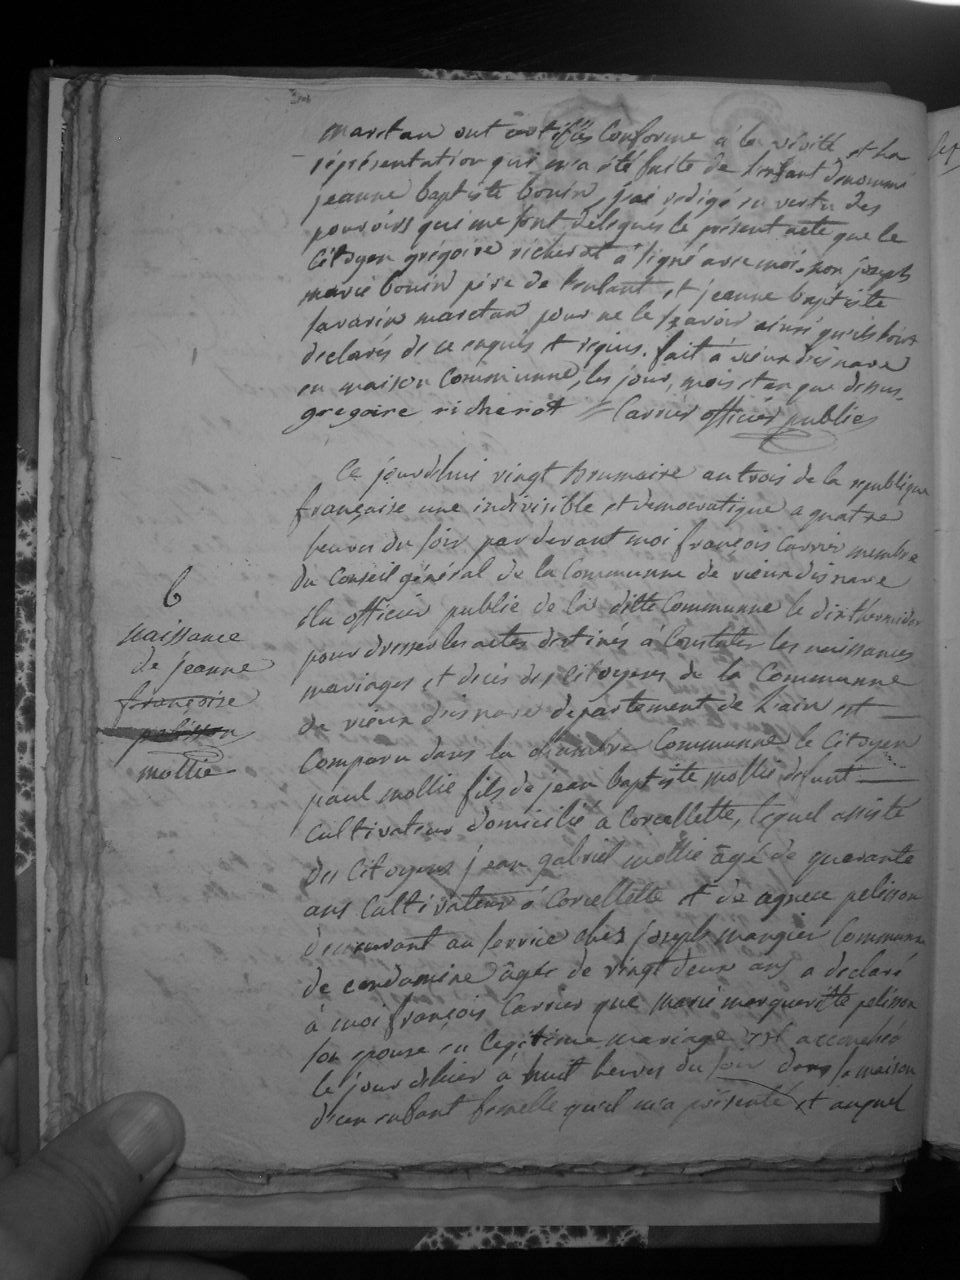 maretan ont certifiés Conforme á la vérité et la
réprésentation qui m'a été faite de l'enfant dénommé
jeanne baptiste bouin, j'ai redigé en vertu des
pouvoirs qui me sont délégués le présent acte que le
Citoyen grégoire richerot á signé avec moi, non joseph
marie bouin pére de l'enfant et jeanne baptiste
savarin maretan pour ne le sçavoir ainsi qu'ils l'ont
declarés de ce enquis et requis. fait á vieux disnave
en maison Commune, les jour, mois et an que dessus.
gregoire richerot Carrier officier public
Ce jourd'hui vingt brumaire an trois de la republique
française une indivisible et democratique a quatre
heures du soir par devant moi françois Carrier membre
du Conseil général de la Commune de vieux disnave
élu officier public de la ditte Commune le dix thermidor
pour dresser les actes destinés á Constater les naissances
mariages et décés des Citoyens de la Commune
de vieux disnave departement de l'ain est
Comparu dans la chambre Commune le Citoyen
paul mollie fils de jean baptiste mollie defunt
Cultivateur domicilié á Corcellette, lequel assisté
des Citoyens jean gabriel mollie âgé de quarante
ans Cultivateur á Corcellette et de agnece pelisson
demeurant au service chez joseph mangier Commune
de condamine âgée de vingt deux ans a declaré
á moi françois Carrier que marie margueritte pelisson
son epouse en legitime mariage est accouchée
le jour d'hier á huit heures du soir dans sa maison
d'un enfant femelle qu'il m'a présenté et auquel
6
naissance
de jeanne
françoise
pelisson
mollie